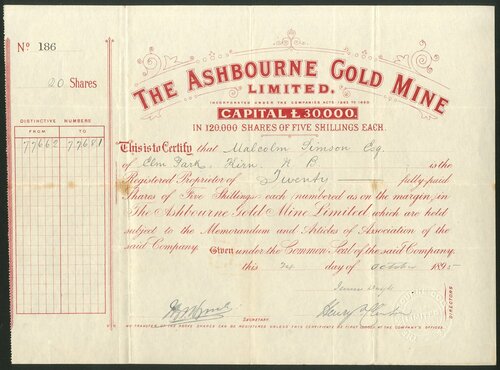 Nº 186
20 Shares
DISTINCTIVE NUMBERS
FROM TO
77662 77681
THE ASHBOURNE GOLD MINE
LIMITED.
INCORPORATED UNDER THE COMPANIES ACTS 1862 TO 1890
CAPITAL £30000.
IN 120,000 SHARES OF FIVE SHILLINGS EACH.
This is to Certify that Malcolm Simson Esq
of Elm Park, Kirn. N B is the
Registered Proprietor of Twenty fully paid
Shares of Five Shillings each numbered as on the margin, in
The Ashbourne Gold Mine Limited which are held
subject to the Memorandum and Articles of Association of the
said Company. Given under the Common Seal of the said Company,
this day of October 1895
SECRETARY
DIRECTORS
NO TRANSFER OF THE ABOVE SHARES CAN BE REGISTERED UNLESS THIS CERTIFICATE BE FIRST LODGED AT THE COMPANY'S OFFICES.